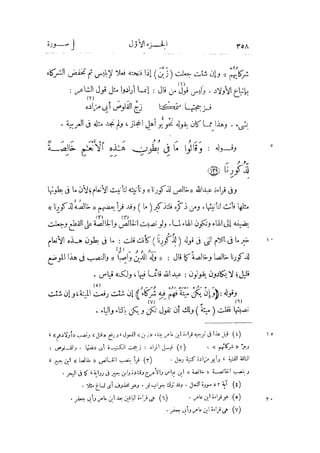 ٣٥٨ الجزء الأول [ســورة
شركاؤهم » وإن شئت جعلت (زيّن) إذا فتحته فعلا لإبليس ثم تخفض الشركاء
بإتباع الأولاد . وليس قول من قال : إنما أرادوا مثل قول الشاعر :
فزججتها متمكنا زجّ القلوص أبى مزاده
بشىء . وهذا مما كان يقوله نحويّو أهل الحجاز ، ولم نجد مثله فى العربية .
٥ وقــوله : وَقَالُوا مَا فِى بُطُونِ هَـٰذِهِ الْأَنْعَـٰمِ خَالِصَةٌ
لِذُكُورِنَا (١٣٩)
وفى قراءة عبدالله « خالص لذكورنا » وتأنيثه لتأنيث الأنعام؛ لأن ما فى بطونها
مثلها فأنث لتأنيثها . ومن ذكّره فلتذكير ( ما ) وقد قرأ بعضهم « خالصه لذكورنا »
يضيفه إلى الهاء وتكون الهاء لما . ولو نصبت الخالص والخالصة على القطع وجعلت
١٠ خبر ما فى اللام التى فى قوله (لذكورنا) كأنك قلت : ما فى بطون هذه الأنعام
لذكورنا خالصا وخالصة كما قال : « وله الدّين واصبا » والنصب فى هذا الموضع
قليل؛ لا يكادون يقولون : عبد الله قائما فيها ، ولكنه قياس .
وقوله : (وإن يكن ميتة فهم فيه شركاء) إن شئت رفعت الميتة ، وإن شئت
نصبتها فقلت (ميتةً) ولك أن تقول تكن ويكن بالتاء والياء .
(٢) قيل المراد : زججت الكتيبة أى دفعتها . والقلوص :
الناقة الفتية . وأبو مزادة كنية رجل . (٣) قرأ بنصب الخالص « خالصا » ابن جبير ،
(٤) آية ٥٢ سورة النحل .
(٥) هو قراءة ابن عامر .
(٧) هى قراءة ابن عامر وأبى جعفر .